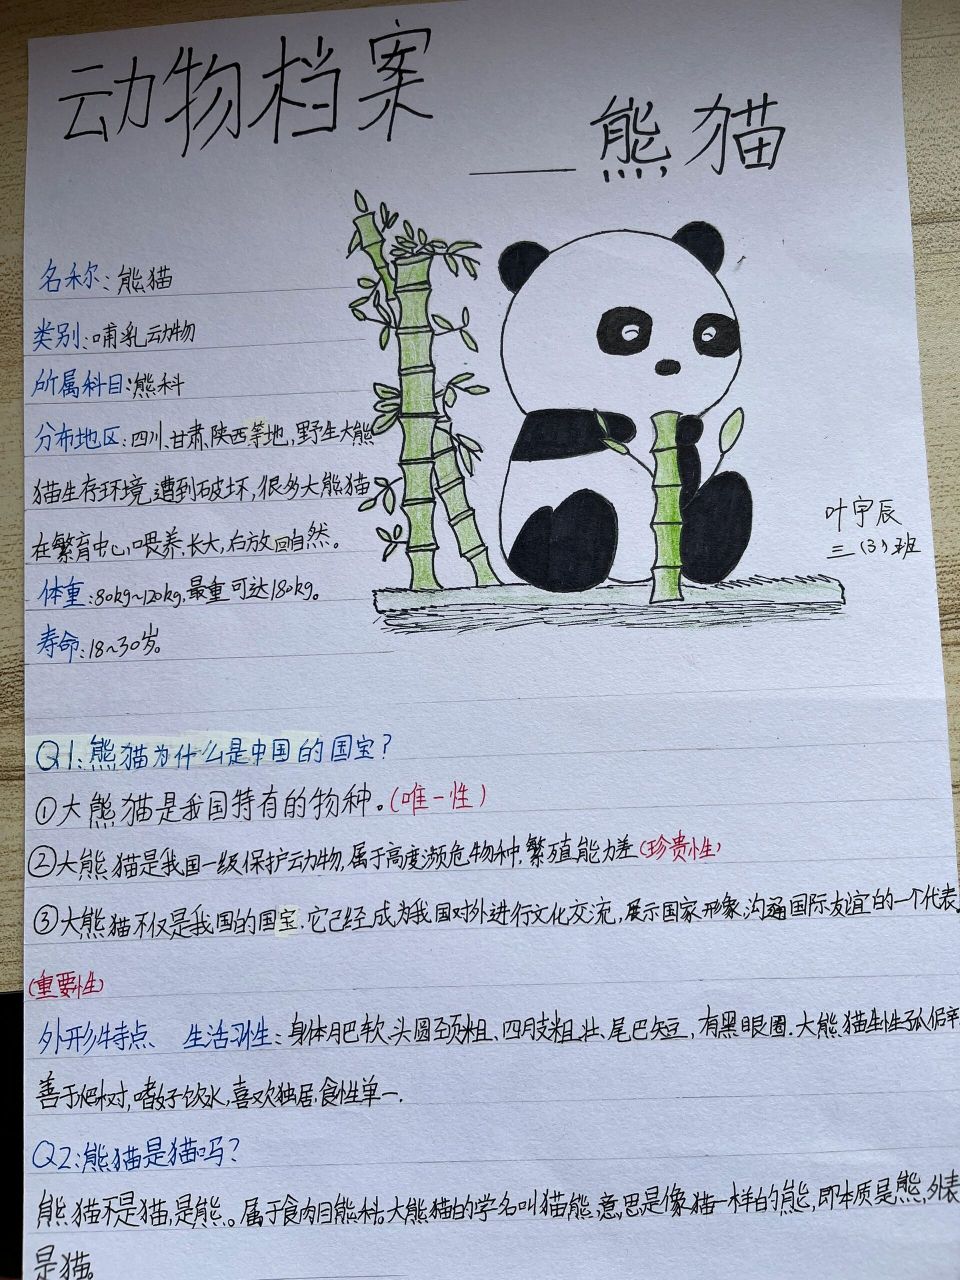 动物档案
——熊猫
名称:熊猫
类别:哺乳动物
所属科目:熊科
分布地区:四川、甘肃、陕西等地,野生大熊
猫生存环境遭到破坏,很多大熊猫
在繁育中心,喂养长大,后放回自然。
体重:80kg~120kg,最重可达180kg。
寿命:18~30岁。
叶宇辰
三(3)班
Q1:熊猫为什么是中国的国宝?
①大熊猫是我国特有的物种。(唯一性)
②大熊猫是我国一级保护动物,属于高度濒危物种,繁殖能力差(珍贵性)
③大熊猫不仅是我国的国宝.它已经成为我国对外进行文化交流,展示国家形象,沟通国际友谊的一个代表
(重要性)
外形特点、 生活习性:身体肥软、头圆颈粗、四肢粗壮、尾巴短,有黑眼圈.大熊猫生性孤僻
善于爬树,嗜好饮水,喜欢独居.食性单一.
Q2:熊猫是猫吗?
熊猫不是猫,是熊。属于食肉目熊科。大熊猫的学名叫猫熊,意思是像猫一样的熊,即本质是熊,外表
是猫。